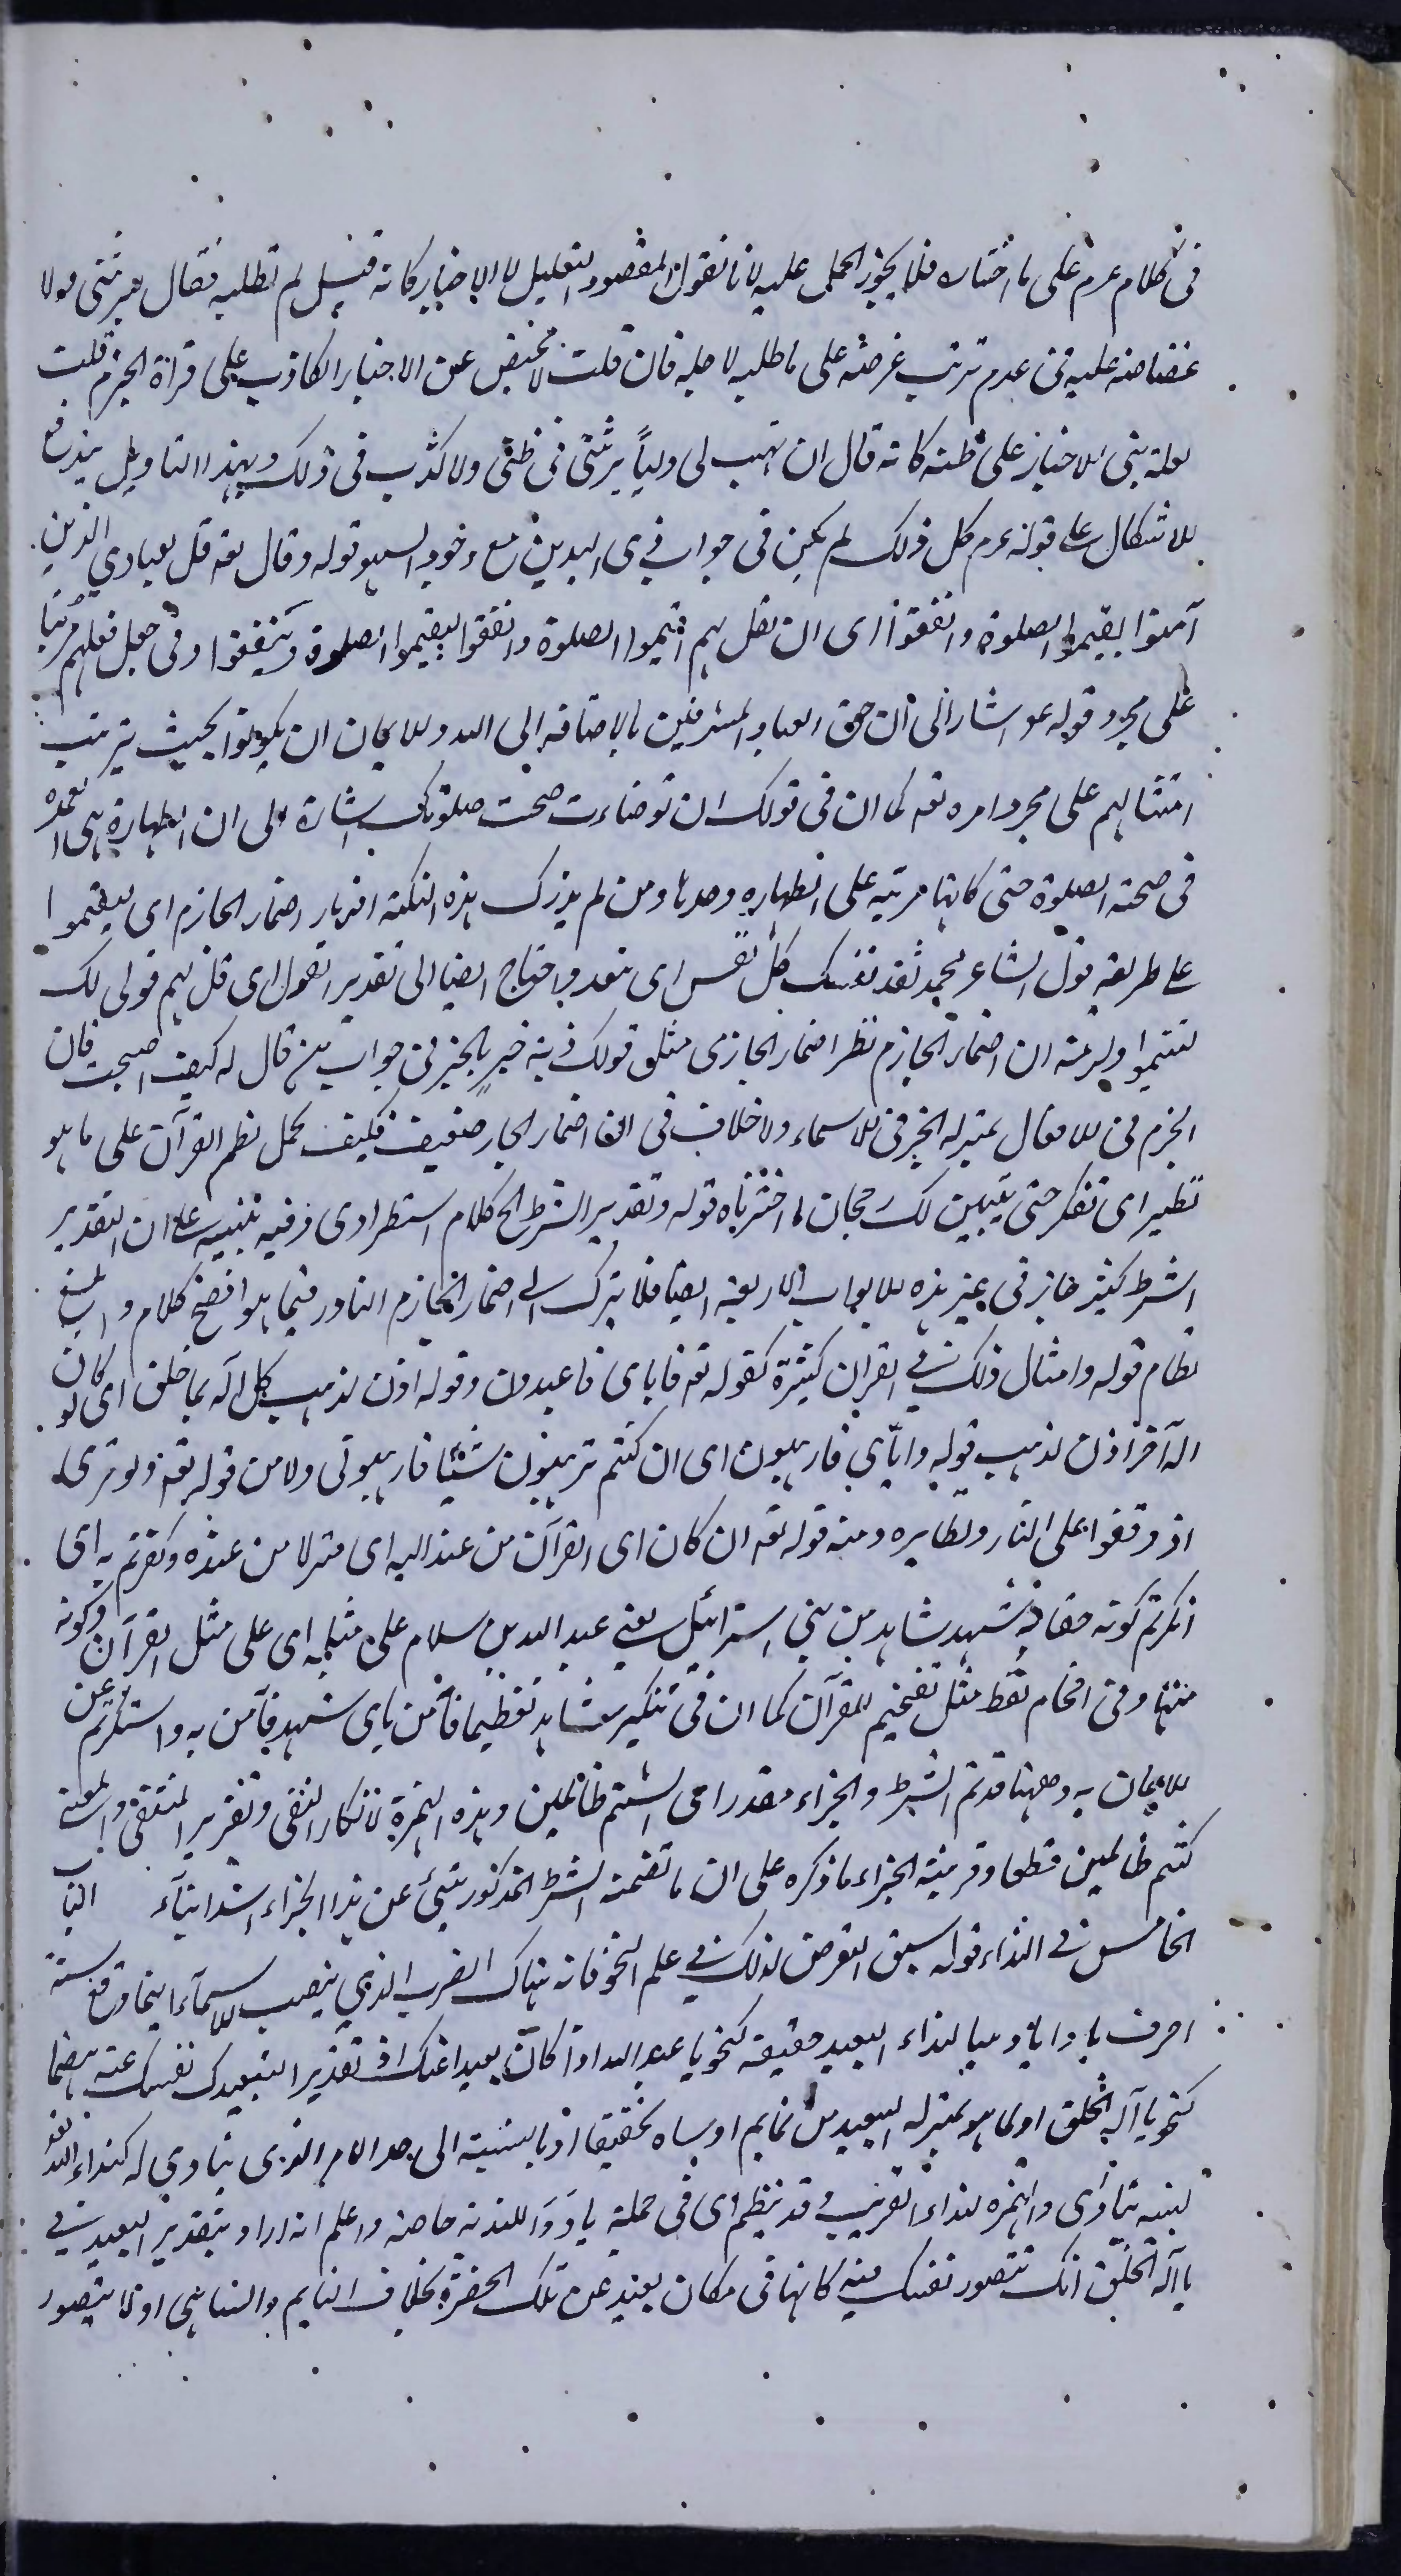 فى كلام عزم على ما اختاره فلا يجوز الحمل عليه لانا نقول المقصود التعليل لا الاخبار كانه قيل لم تطلبه فقال يرثنى ولا
غضاضة عليه فى عدم ترتب غرضه على ما طلبه لاجله فان قلت لا مخيص عن الاخبار الكاذب على قراءة الجزم قلت
لعله بنى الاخبار على ظنه كانه قال ان تهب لى ولياً يرثنى فى ظنى ولا كذب فى ذلك وبهذا التاويل يندفع
الاشكال على قوله عم كل ذلك لم يكن فى جواب ذى اليدين مع وجود السهو قوله وقال تعه قل لعبادي الذين
آمنوا يقيموا الصلوة وانفقوا اى ان تقل لهم اقيموا الصلوة وانفقوا يقيموا الصلوة وينفقوا وفى جعل فعلهم مرتبا
على مجرد قوله عم اشار الى ان حق العباد المشرفين بالاضافة الى الله والايمان ان يكونوا بحيث يترتب
امتثالهم على مجرد امره تعه كما ان فى قولك ان توضاءت صحت صلوتك اشارة الى ان الطهارة هى العمدة
فى صحة الصلوة حتى كانها مرتبة على الطهارة وحدها ومن لم يدرك هذه النكتة اضمار الجازم اى ليقيموا
على طريقة قول الشاعر محمد تفد نفسك كل نفس اى لتفد واحتاج ايضا الى تقدير القول اى قل لهم قولى لك
لتقيموا ان اضمار الجازم نظير اضمار الجار فى مثل قولك خير بالجر فى جواب من قال له كيف اصبحت فان
الجزم فى الافعال بمنزلة الجر فى الاسماء ولا خلاف فى ان اضمار الجار ضعيف فكيف يحمل نظم القرآن على ما هو
نظيره اى تفكر حتى يتبين لك رجحان ما اخترناه قوله وتقدير الشرط الخ كلام استطرادى وفيه تنبيه على ان التقدير
الشرط كثير جايز فى غير هذه الابواب الاربعة ايضا فلا يترك الى اضمار الجازم النادر فيما هو افصح كلام وابلغ
نظام قوله وامثال ذلك فى القران كثيرة كقوله تعه فاياى فاعبدون وقوله اذن لذهب كل اله بما خلق اى لو كان
اله آخر اذن لذهب قوله واياى فارهبون اى ان كنتم ترهبون شيئا فارهبونى ولا من قوله تعه ولو ترى
اذ وقفوا على النار ونظايره ومنه قوله تعه ان كان اى القرآن من عند الله اى منزلا من عنده وكفرتم به اى
انكرتم كونه حقا وشهد شاهد من بنى اسرائيل يعنى عبد الله بن سلام على مثله اى على مثل القرآن وكونه
منها وفى اقحام لفظ مثل تفخيم للقرآن كما ان فى تنكير شاهد تعظيما فآمن باى شهد فآمن به واستكبرتم عن
الايمان به وههنا قدتم الشرط والجزاء مقدر اى الستم ظالمين وهذه الهمزة لانكار النفى وتقرير المنفى والمعنى
كنتم ظالمين قطعا وقرينة الجزاء ما ذكره على ان ما تضمنه الشرط المذكور ينبئ عن هذا الجزاء اشد انباء الباب
الخامس فى النداء قوله سبق التعرض لذلك فى علم النحو فانه هناك الضرب الذي ينصب الاسماء اينما وقع ستة
احرف يا وايا وهيا لنداء البعيد حقيقة كنحو يا عبد الله اذا كان بعيدا عنك او تقديرا لتبعيدك نفسك عنه هضما
كنحو يا آله الخلق او لما هو بمنزلة البعيد من نايم او ساه تحقيقا او بالنسبة الى جد الامر الذى ينادى له كنداء الله تعه
لنبيه تنادى والهمزة لنداء القريب قد ينظم اى فى جملة يا و وا للندبة خاصة واعلم انه اراد بتقدير البعيد فى
يا آله الخلق انك تتصور نفسك منه كانها فى مكان بعيد عن تلك الحضرة بخلاف النايم والساهى اذ لا يتصور